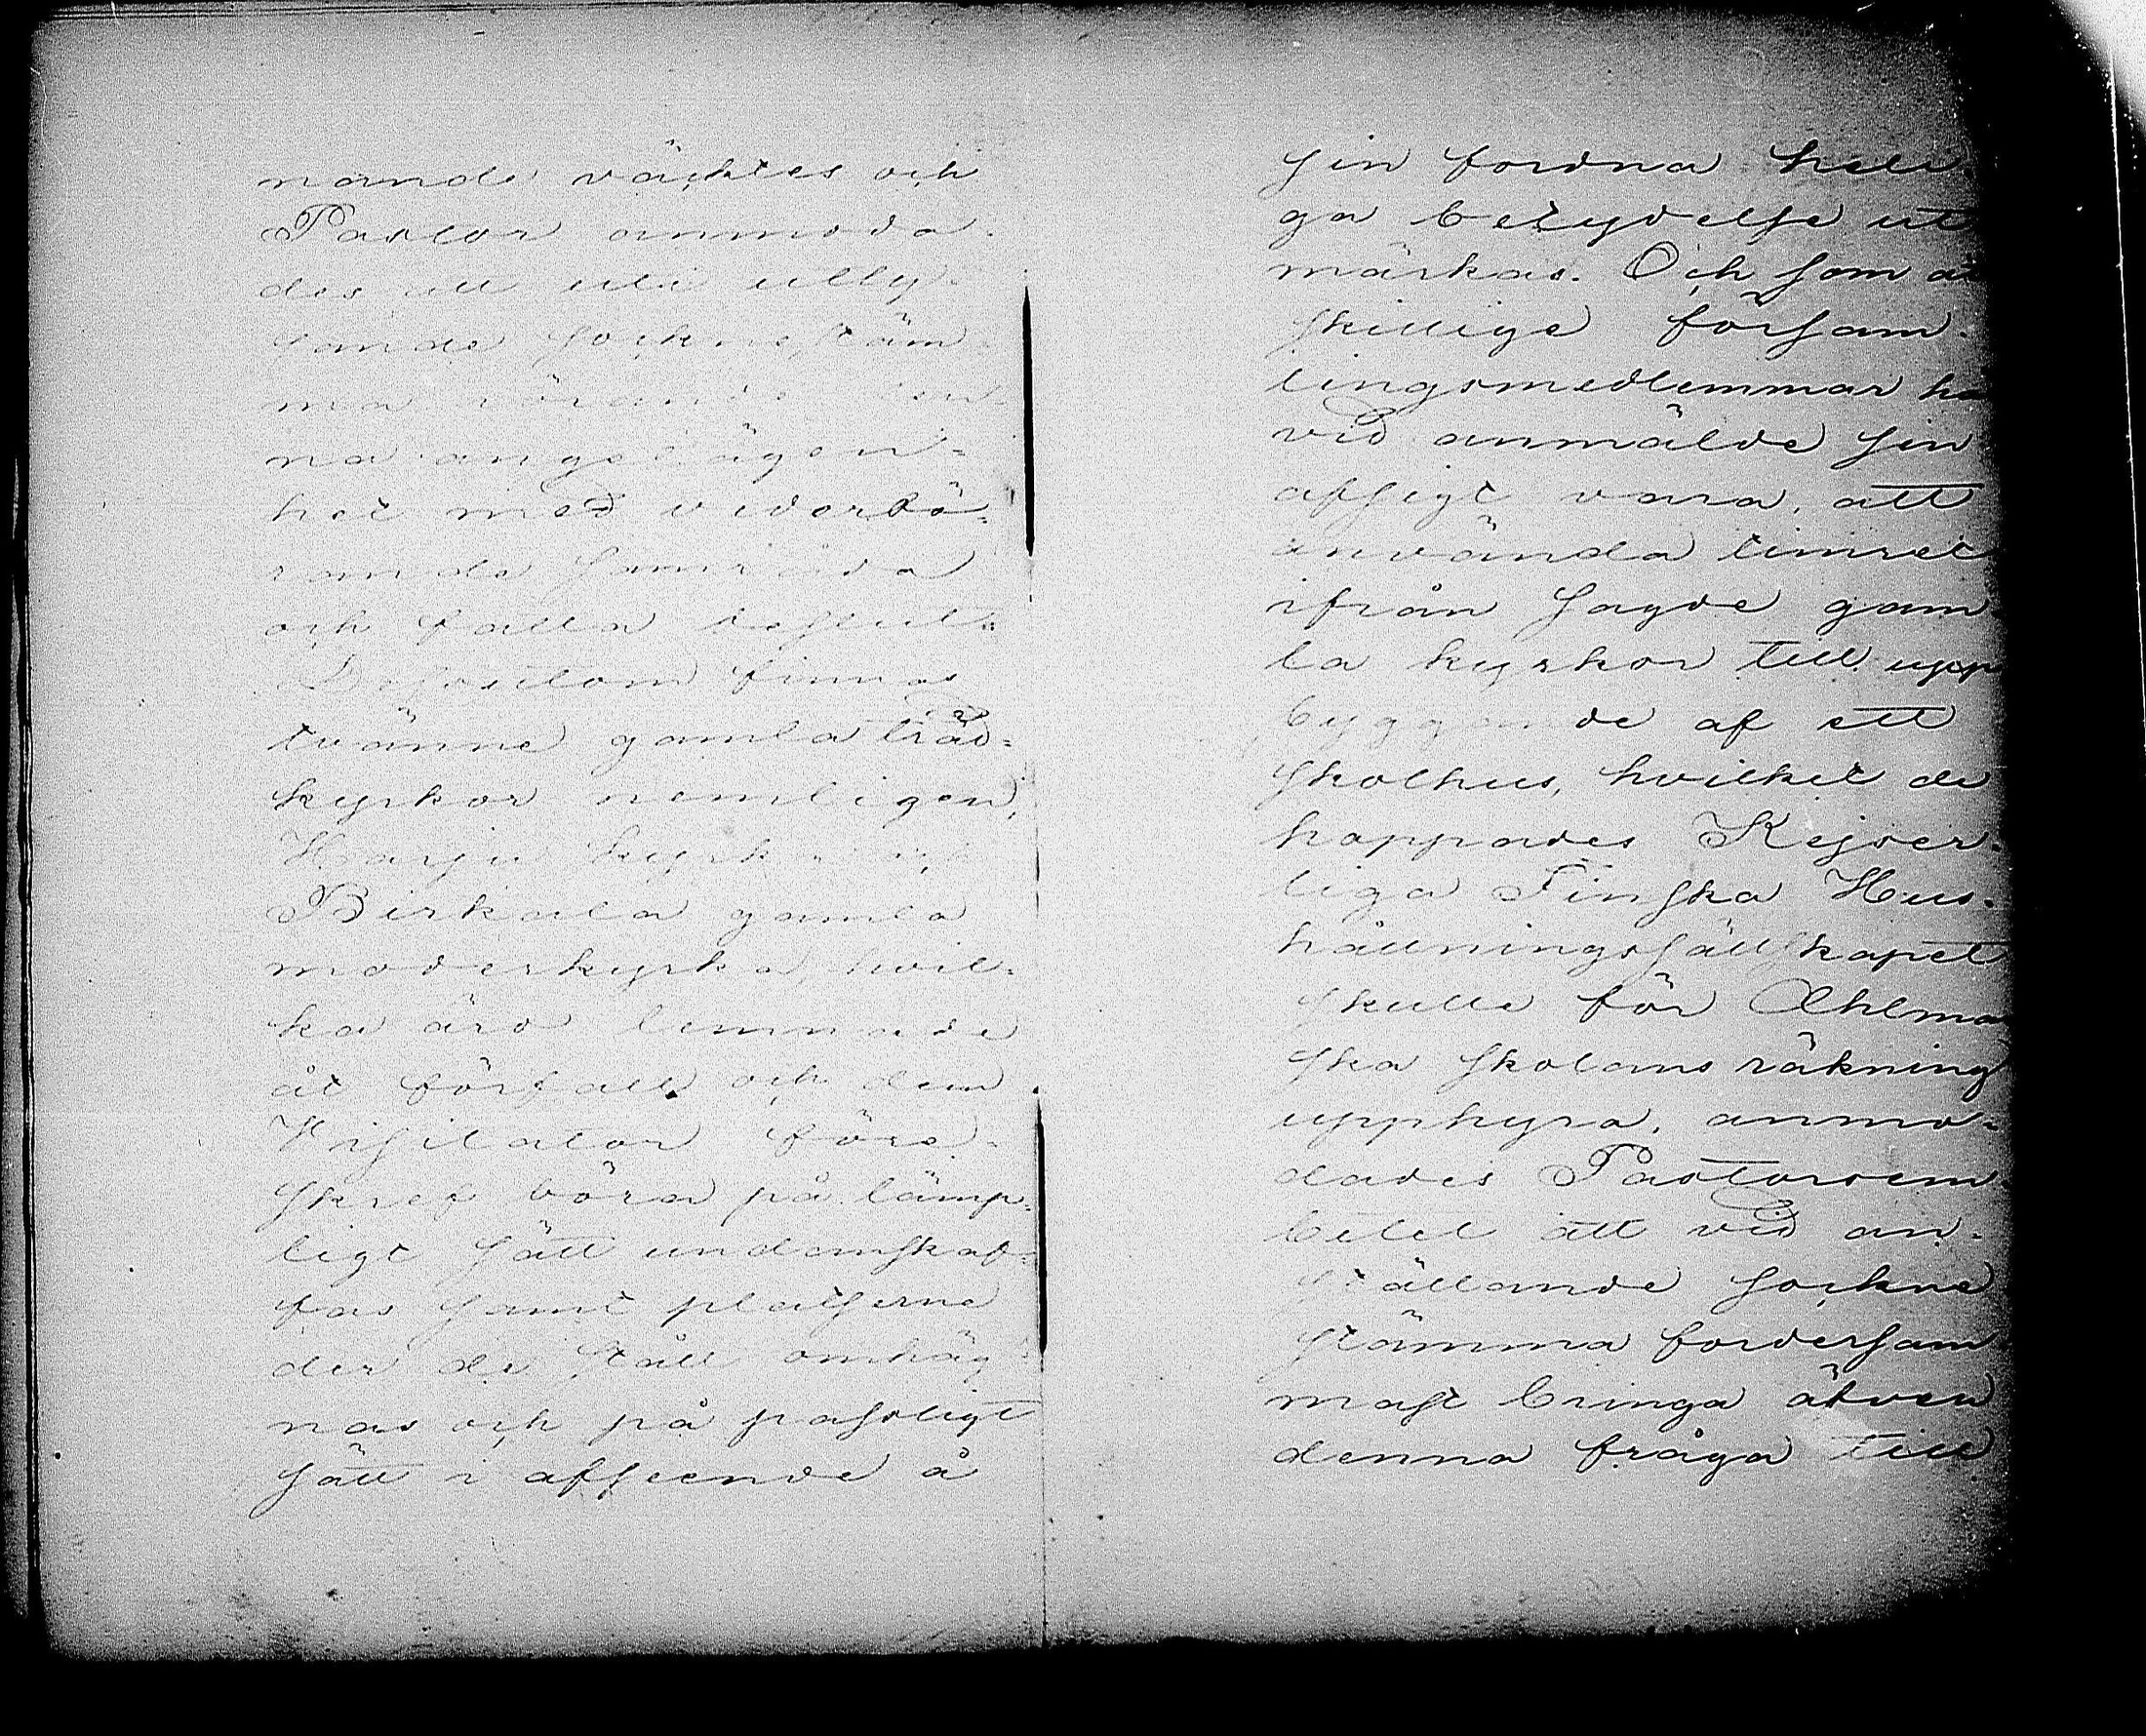 nande väcktes och
Pastor anmoda-
des att uti utly-
sande Sockenstäm-
ma rörande den-
na angelägen-
het med vederbö-
rande samråda
och fatta beslut.
Dessutom finnas
tvänne gamla träd-
kyrkor nemligen,
Harju kyrka och
Birkala gamla
moderkyrka, hvil-
ka äro lemnade
åt förfall och dem
Visitator före-
skref böra på lämp-
ligt sätt undanskaf-
fas samt platserne
der de stått omhäg
nas och på passligt
sätt i afseende å
sin fordna heli
ga betydelse ut
märkas. Och som åt
skillige försam-
lingsmedlemmar här
vid anmälde sin
afsigt vara, att
använda timret
ifrån sagde gam-
la kyrkor till upp
byggande af ett
skolhus, hvilket de
hoppades Kejser-
liga Finska Hus-
hållningssällskapet
skulle för Ahlman
ska skolans räkning
upphyra, anmo-
dades Pastorsem-
betet att vid an-
ställande Sockne
stämma fordersam
mast bringa äfven
denna fråga till